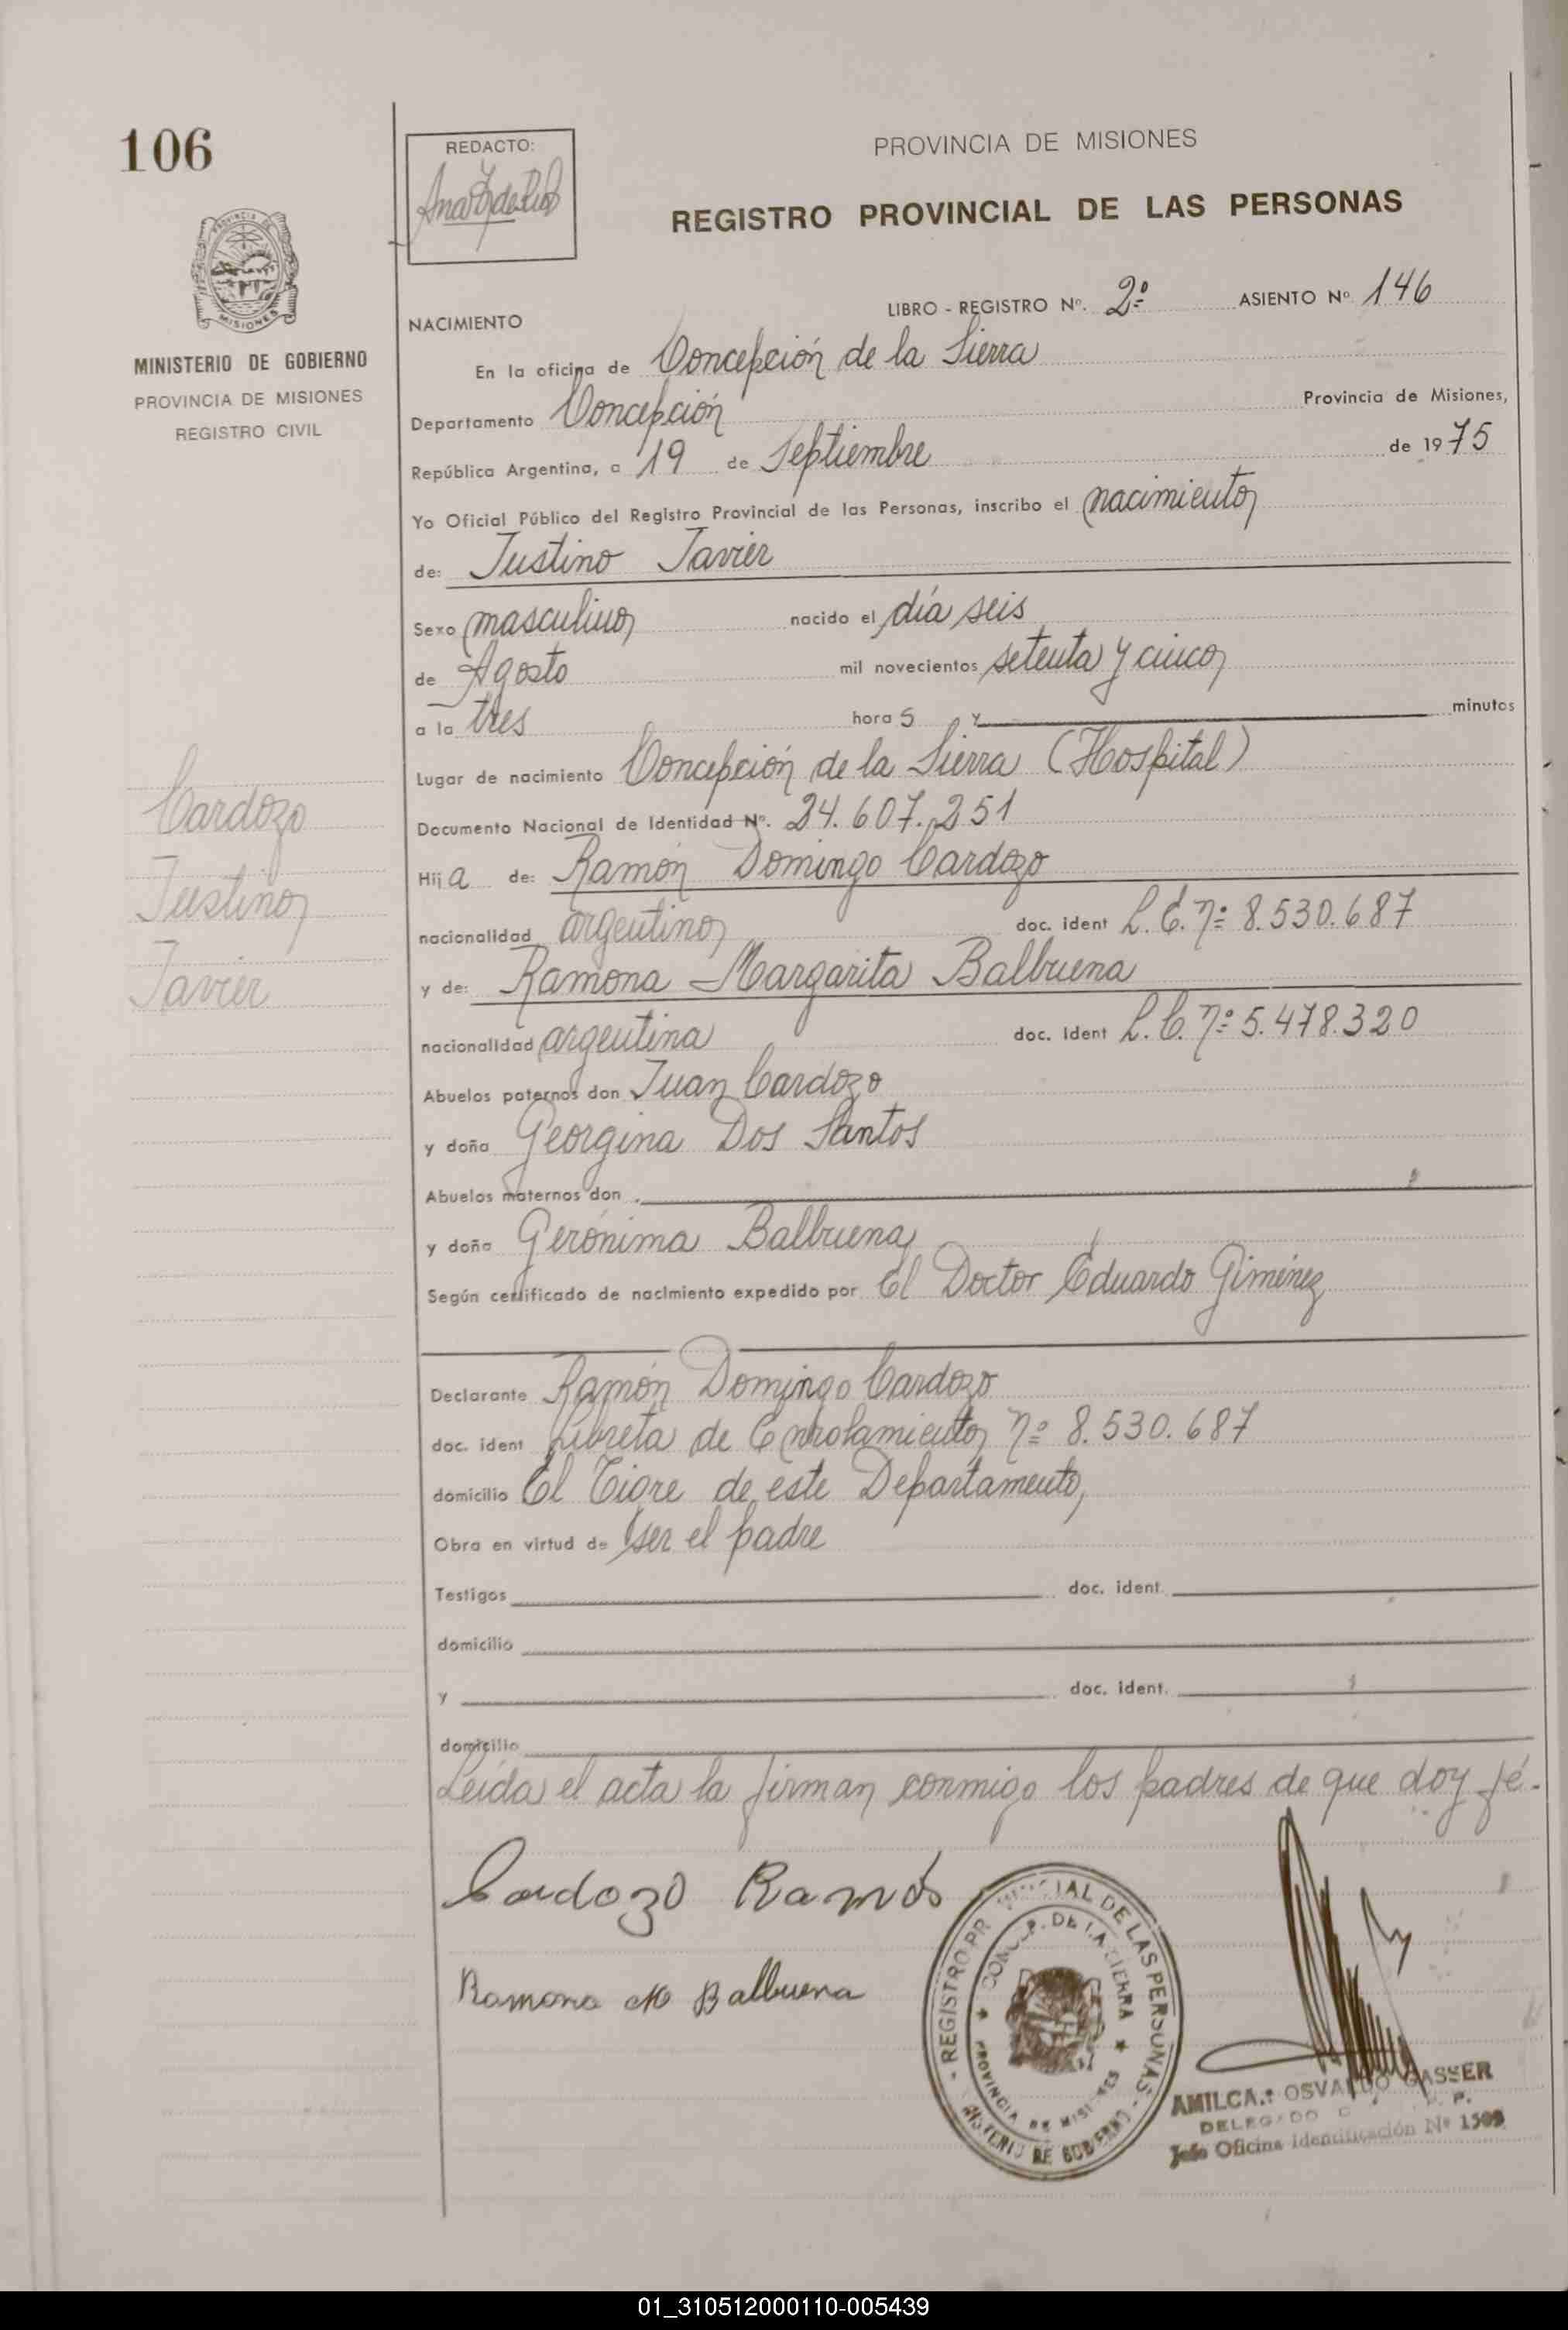 106
REDACTO:
PROVINCIA DE MISIONES
REGISTRO PROVINCIAL DE LAS PERSONAS
MINISTERIO DE GOBIERNO
PROVINCIA DE MISIONES
REGISTRO CIVIL
LIBRO - REGISTRO Nº. 2º ASIENTO Nº 146
NACIMIENTO
En la oficina de Concepción de la Sierra
Departamento Concepción Provincia de Misiones,
República Argentina, a 19 de Septiembre de 1975
Yo Oficial Público del Registro Provincial de las Personas, inscribo el nacimiento
de: Justino Javier
Sexo masculino nacido el día seis
de Agosto mil novecientos setenta y cinco
a la tres hora s y minutos
Lugar de nacimiento Concepción de la Sierra (Hospital)
Documento Nacional de Identidad Nº. 24.607.251
Cardozo
Justino
Javier
Hij a de: Ramón Domingo Cardozo
nacionalidad argentino doc. ident L.E. nº 8.530.687
y de: Ramona Margarita Balbuena
nacionalidad argentina doc. ident L.C. nº 5.478.320
Abuelos paternos don Juan Cardozo
y doña Georgina Dos Santos
Abuelos maternos don
y doña Gerónima Balbuena
Según certificado de nacimiento expedido por El Doctor Eduardo Giménez
Declarante Ramón Domingo Cardozo
doc. ident Libreta de Enrolamiento nº 8.530.687
domicilio El Tigre de este Departamento
Obra en virtud de ser el padre
Testigos doc. ident.
domicilio
y doc. ident.
domicilio
Leída el acta la firman conmigo los padres de que doy fé.
Cardozo Ramón
Ramona M Balbuena
REGISTRO PROVINCIAL DE LAS PERSONAS
MINISTERIO DE GOBIERNO
CONCEP. DE LA SIERRA
PROVINCIA DE MISIONES
AMILCAR OSVALDO GASSER
DELEGADO
Jefe Oficina Identificación Nº 1509
01_310512000110-005439